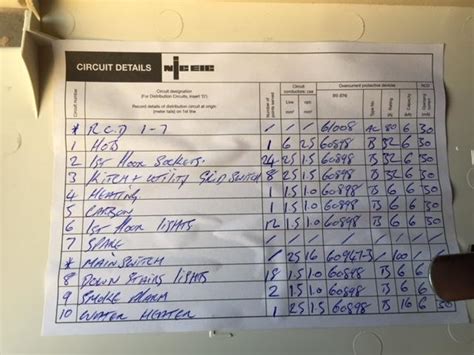 CIRCUIT DETAILS NICEIC
Circuit number
Circuit designation
(For Distribution Circuits, insert 'D')
Record details of distribution circuit at origin
(meter tails) on 1st line
Number of points served
Circuit
conductors: csa
Live
mm²
cpc
mm²
Overcurrent protective devices
BS (EN)
Type No.
Rating
(A)
(kA)
RCD
* R.C.D 1-7 / / / 61008 AC 80 6 30
1 HOB 1 6 25 60898 B 32 6 30
2 1ST floor SOCKETS. 24 25 1.5 60898 B 32 6 30
3 KITCH & UTILITY SLD SWITCH 8 25 1.5 60898 B 32 6 30
4 HEATING 1 1.5 1.0 60898 B 6 6 30
5 1 1.5 1.0 60898 B 6 6 30
6 1ST floor lights 12 1.5 1.0 60898 B 6 6 30
7 SPARE / / / / / / / /
* MAIN SWITCH / 25 16 60947-3 / 100
8 DOWN STAIRS lights 1.5 1.0 60898 B 6 6
9 SMOKE ALARM 2 1.5 1.0 60898 B 6 6
10 WATER HEATER 1 25 1.5 60898 B 16 6